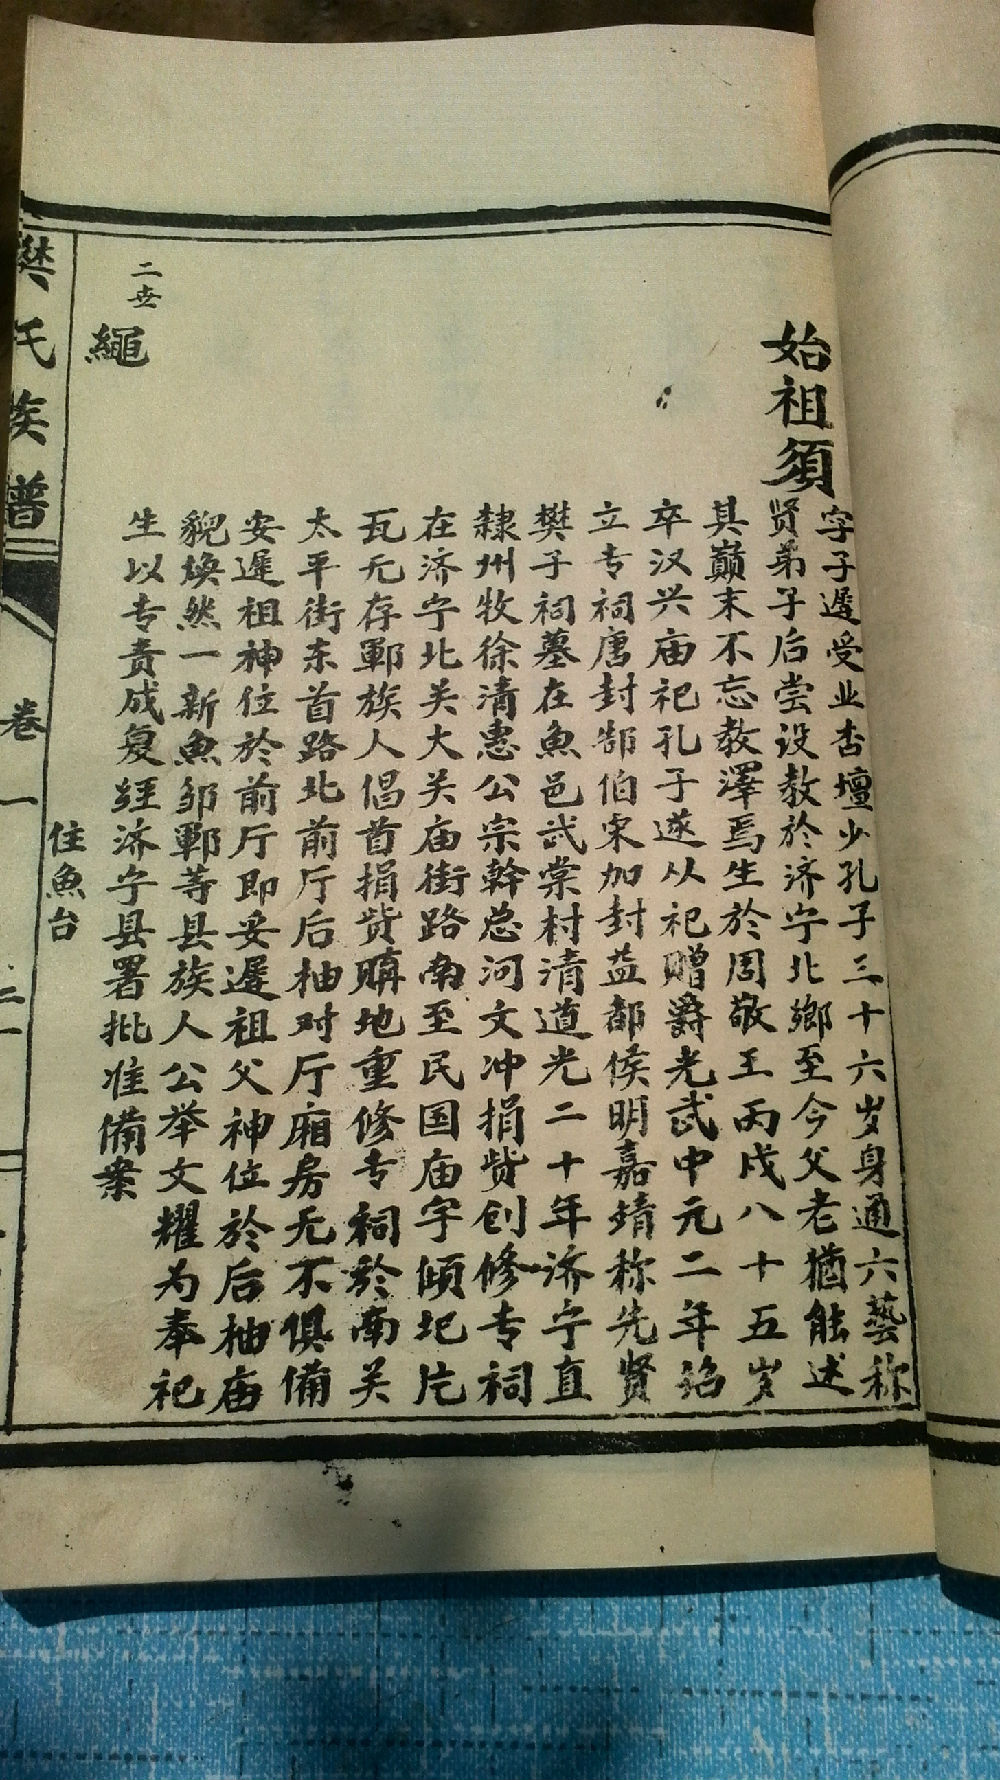 始祖须
字子遲受业杏壇少孔子三十六岁身通六藝称
贤弟子后尝设教於济宁北鄉至今父老猶能述
其巅末不忘教澤焉生於周敬王丙戌八十五岁
卒汉兴庙祀孔子遂从祀赠爵光武中元二年诏
立专祠唐封郜伯宋加封益都侯明嘉靖称先贤
樊子祠墓在魚邑武棠村清道光二十年济宁直
隸州牧徐清惠公宗幹总河文冲捐赀创修专祠
在济宁北关大关庙街路南至民国庙宇倾圮片
瓦无存鄆族人倡首捐赀購地重修专祠於南关
太平街东首路北前厅后柚对厅廂房无不俱備
安遲祖神位於前厅即安遲祖父神位於后柚庙
貌焕然一新魚邹鄆等县族人公举文耀为奉祀
生以专责成复经济宁县署批准備案
二世
繩
住魚台
樊氏族譜
卷一